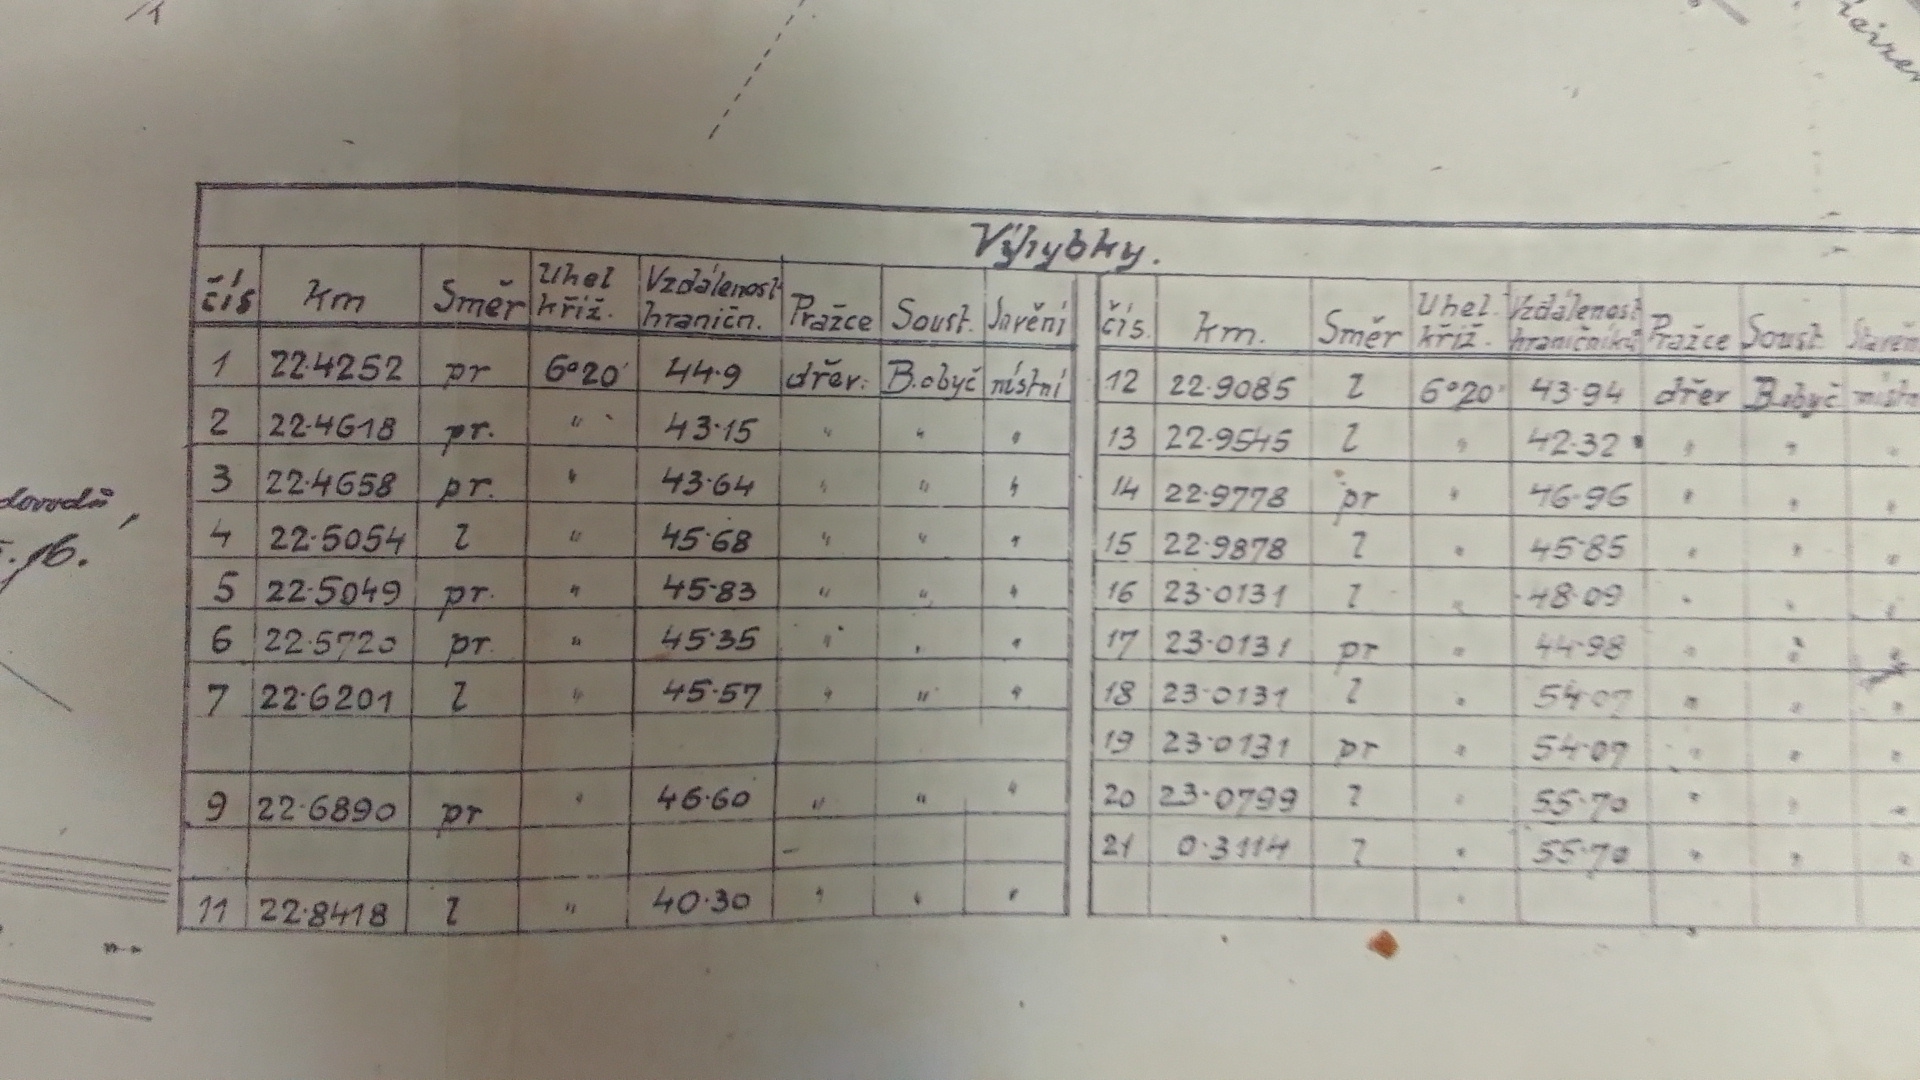 dovodů,
Výhybky.
čís km Směr Uhel křiž. Vzdálenost hraničn. Pražce Soust. Stavění
1 22·4252 pr 6°20' 44·9 dřev. B.obyč místní
2 22·4618 pr. " 43·15 " " "
3 22·4658 pr. " 43·64 " " "
4 22·5054 l " 45·68 " " "
5 22·5049 pr. " 45·83 " " "
6 22·5720 pr. " 45·35 " " "
7 22·6201 l " 45·57 " " "
9 22·6890 pr " 46·60 " " "
11 22·8418 l " 40·30 " " "
čís. km. Směr Uhel křiž. Vzdálenost hraničníků Pražce Soust
12 22·9085 l 6°20' 43·94 dřev B.obyč
13 22·9545 l " 42·32 " " "
14 22·9778 pr " 46·96 " " "
15 22·9878 l " 45·85 " " "
16 23·0131 l " 48·09 " " "
17 23·0131 pr " 44·98 " " "
18 23·0131 l " 54·07 " " "
19 23·0131 pr " 54·07 " " "
20 23·0799 l " 55·70 " " "
21 0·3114 l " 55·70 " " "
"